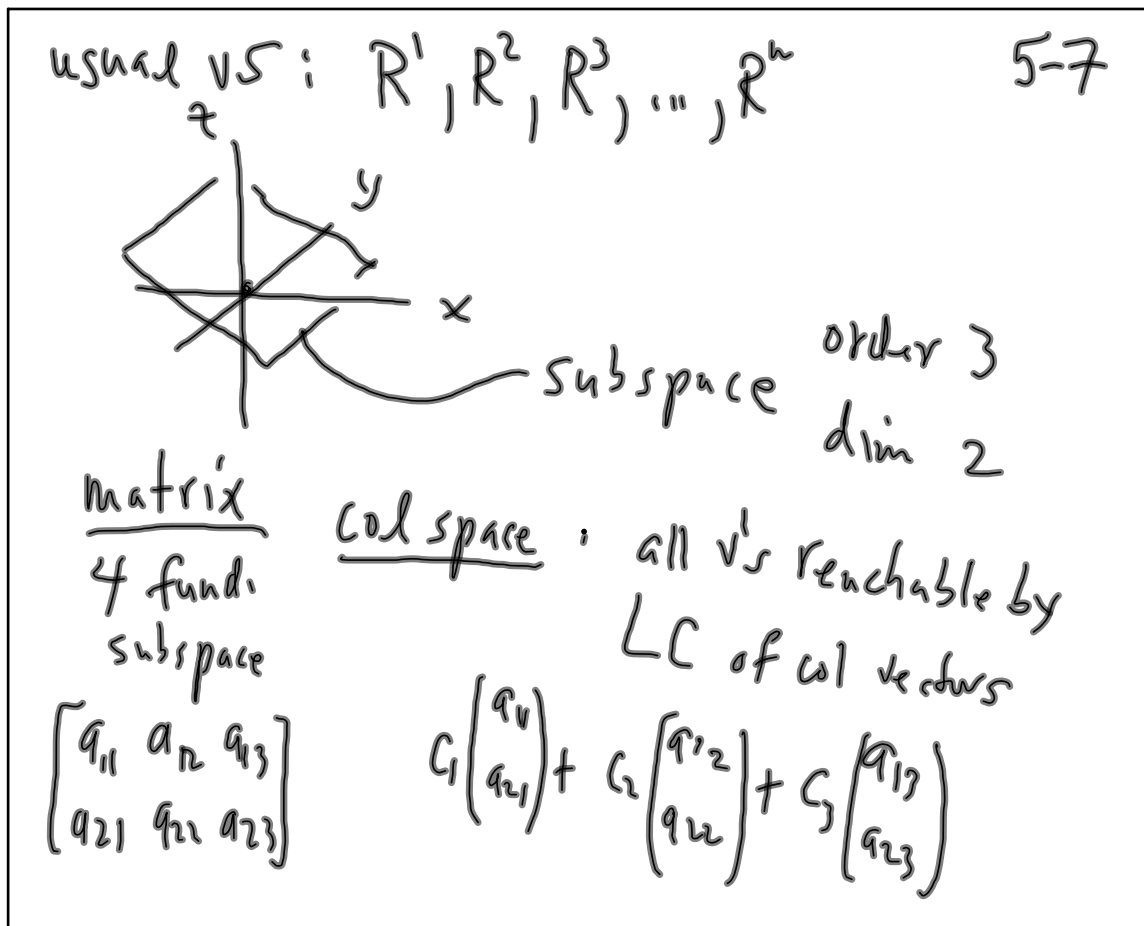 usual VS : R¹, R², R³, ..., Rⁿ 5-7
z
y
x
subspace
order 3
dim 2
matrix
4 fund.
subspace
col space : all v's reachable by
LC of col vectors
[a₁₁ a₁₂ a₁₃
a₂₁ a₂₂ a₂₃]
C₁(a₁₁ a₂₁) + C₂(a₁₂ a₂₂) + C₃(a₁₃ a₂₃)